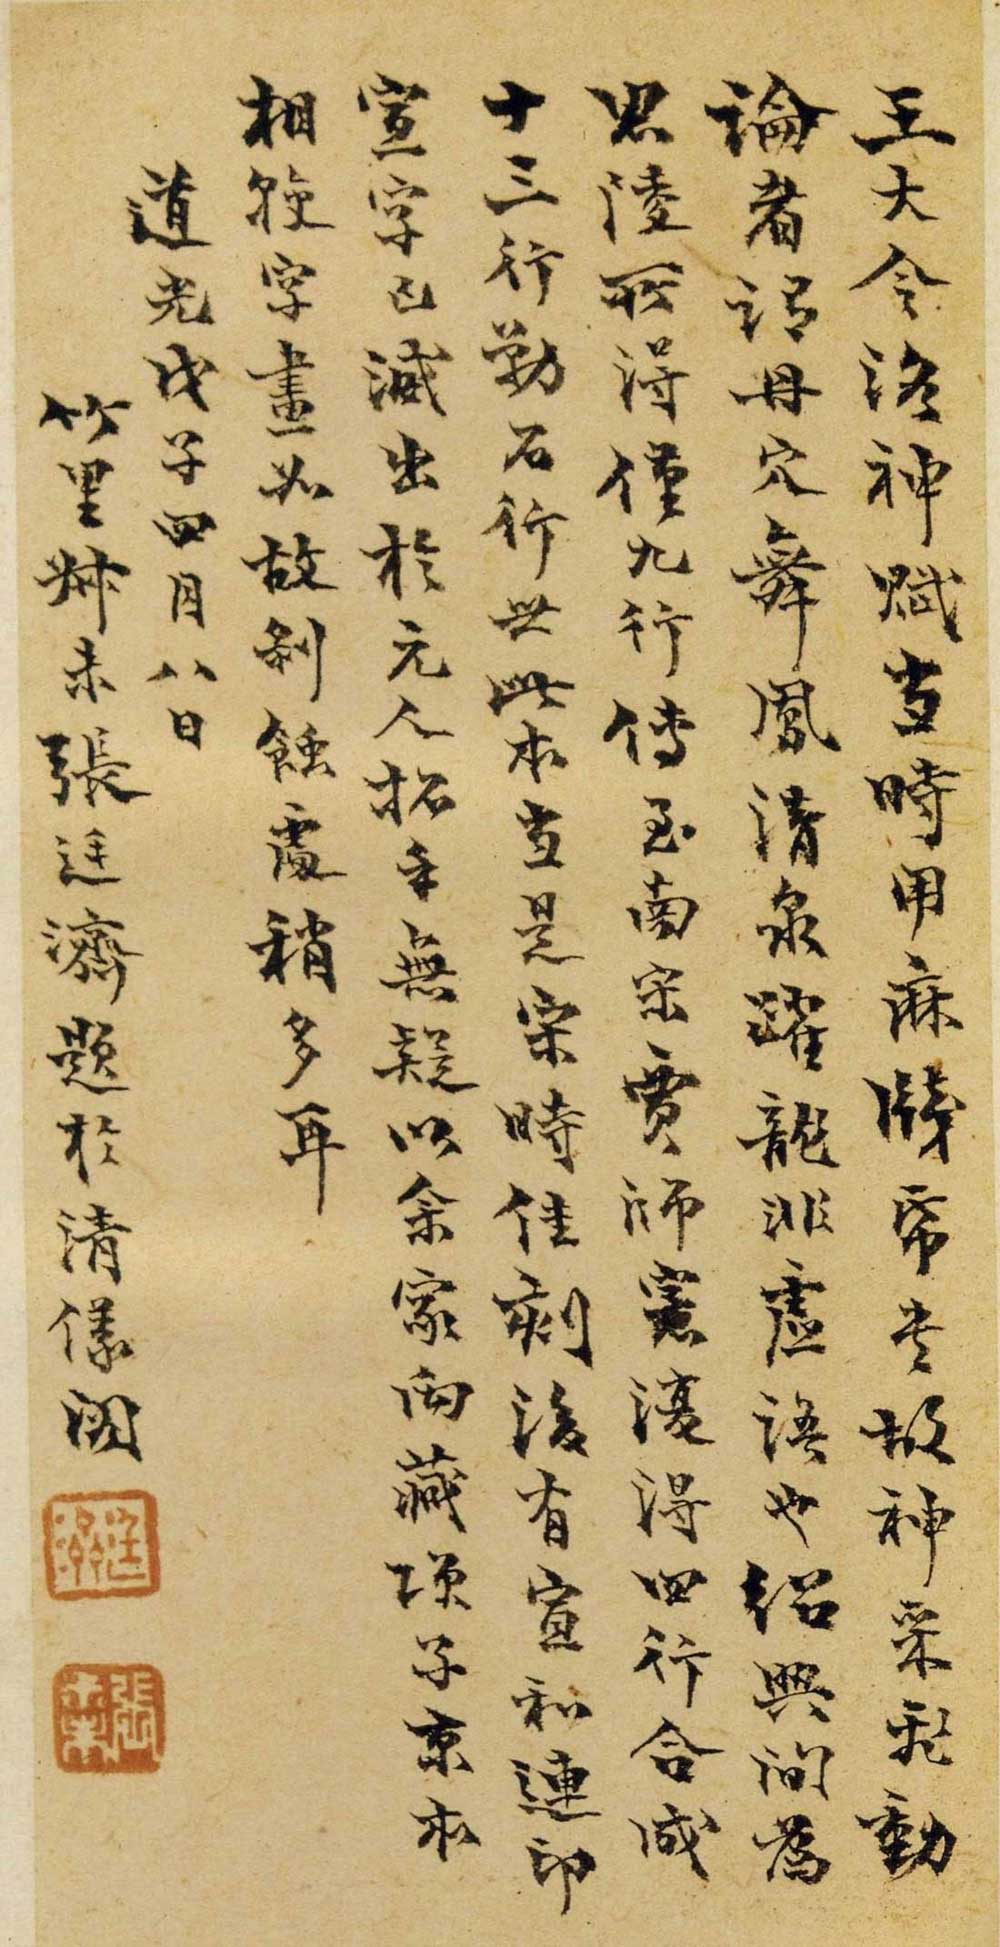 王大令洛神賦當時用麻牋帋書故神采飛動
論者謂丹穴舞鳳清泉躍龍非虛語也紹興間為
思陵所得僅九行傳至南宋賈師憲復得四行合成
十三行勒石行世此本當是宋時佳刻後有宣和連印
宣字已滅出於元人拓手無疑以余家兩藏項子京本
相較字畫如故剝蝕處稍多耳
道光戊子四月八日
竹里叔未張廷濟題於清儀閣
廷濟
張叔未